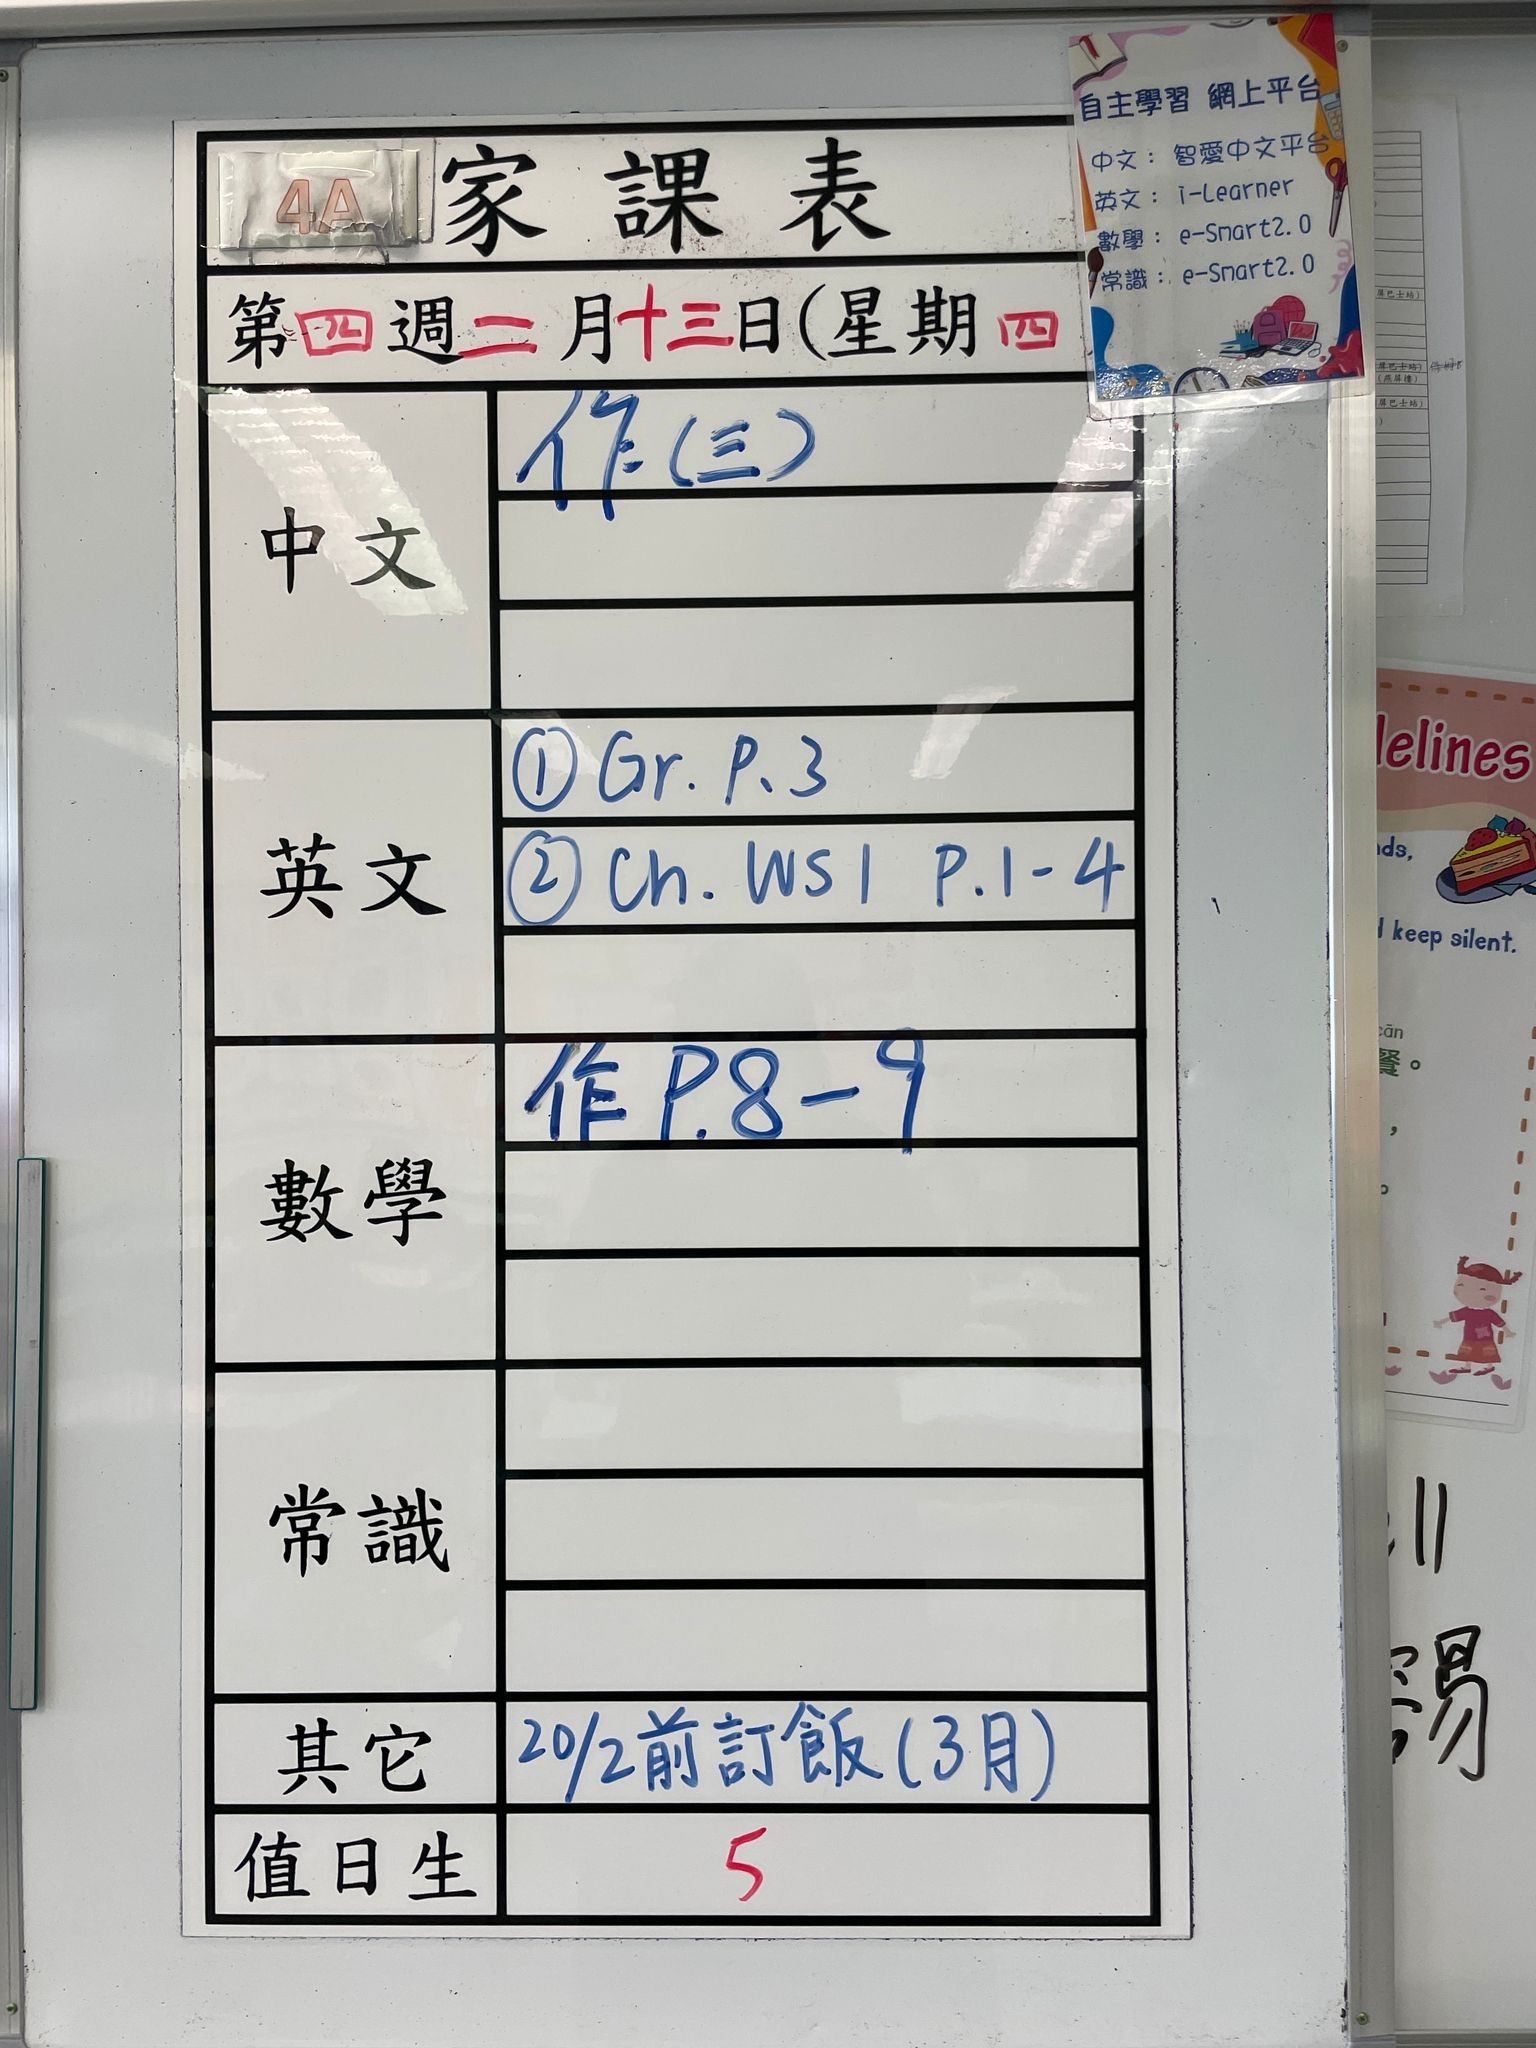 4A 家課表
自主學習 網上平台
中文： 智愛中文平台
英文： i-Learner
數學： e-Smart2.0
常識： e-Smart2.0
第四週二月十三日(星期四
中文
作(三)
英文
① Gr. P.3
② Ch. WS1 P.1-4
數學
作 P.8-9
常識
其它
20/2前訂飯(3月)
值日生
5
lelines
nds,
keep silent.
cān
餐。